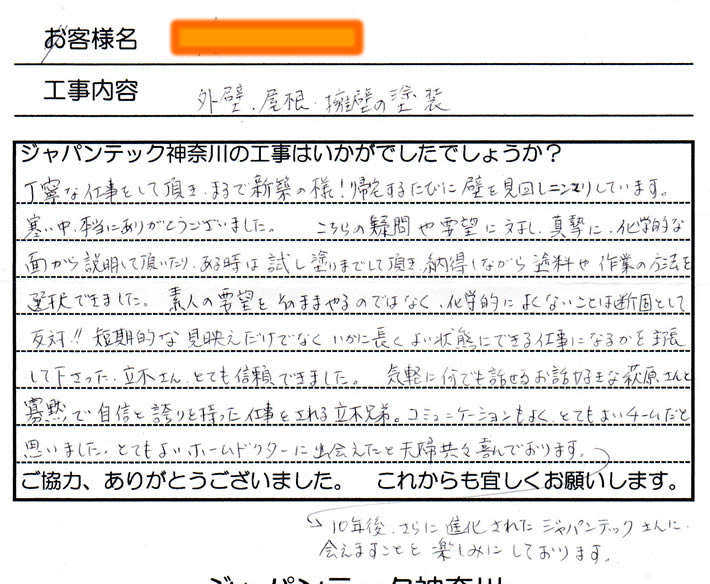 お客様名
工事内容 外壁・屋根・擁壁の塗装
ジャパンテック神奈川の工事はいかがでしたでしょうか？
丁寧な仕事をして頂き、まるで新築の様！帰宅するたびに壁を見回しニンマリしています。
寒い中、本当にありがとうございました。 こちらの疑問や要望に対し、真摯に、化学的な
面から説明して頂いたり、ある時は試し塗りまでして頂き、納得しながら塗料や作業の方法を
選択できました。 素人の要望をそのままやるのではなく、化学的によくないことは断固として
反対!! 短期的な見映えだけでなくいかに長くよい状態にできる仕事になるかを主張
して下さった、立木さん、とても信頼できました。 気軽に何でも話せるお話好きな萩原さんと
寡黙で自信と誇りを持った仕事をされる立木兄弟。コミュニケーションもよく、とてもよいチームだと
思いました。とてもよいホームドクターに出会えたと夫婦共々喜んでおります。
ご協力、ありがとうございました。 これからも宜しくお願いします。
10年後、さらに進化されたジャパンテックさんに、
会えますことを楽しみにしております。
ジャパンテック神奈川